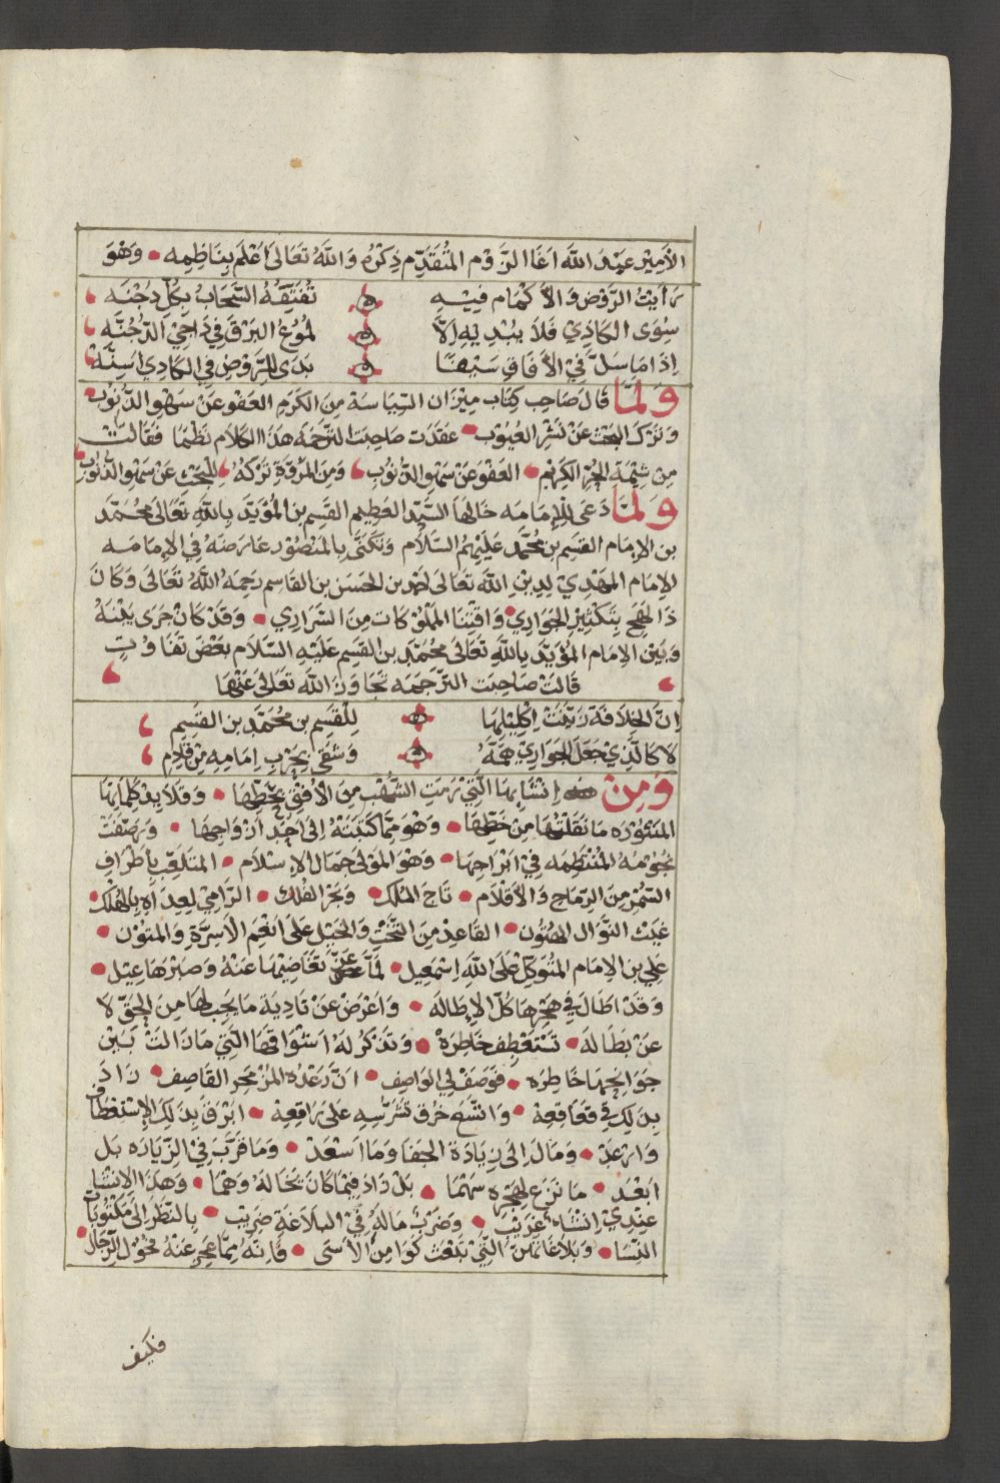 الأمير عبد الله اغا الزوم المتقدم ذكره والله تعالى اعلم بناظمه • وهو
رأيت الروض والأكمام فيه تفتقه السحاب بكل دجنه
سوى الكاذي فلا يبديه الا لموع البرق في داجي الدجنه
اذا ما سل في الأفاق سيفا بدى للروض في الكادي اسنه
ولما قال صاحب كتاب ميزان السياسة من الكرم العفو عن سهو الذنوب
وترك البحث عن نشر العيوب • عقدت صاحبت الترجمه هذا الكلام نظما فقالت
من شيمة الحر الكريم • العفو عن سهو الذنوب ومن المروة تركه للبحث عن سهو الذنوب
ولما دعى للإمامه خالها السيد العظيم القسم بن المؤيد بالله تعالى محمد
بن الإمام القسم بن محمد عليهم السلام وتكنى بالمنصور عارضه في الإمامه
الإمام المهدي لدين الله تعالى احمد بن الحسن بن القاسم رحمه الله تعالى وكان
ذا لهج بتكثير الجواري • واقتنا المملوكات من السراري • وقد كان جرى بينه
وبين الإمام المؤيد بالله تعالى محمد بن القسم عليه السلام بعض تفاوت
قالت صاحبت الترجمه تجاوز الله تعالى عنها
ان الخلافة زينت اكليلها للقسم بن محمد بن القسم
لا كالذي جعل الجواري همه وشقى بحرب امامه من قدم
ومن إنشائها التي رمت الشهب من الأفق بحظها • وقلايد كلماتها
المنثوره ما نقلتها من خطها • وهو مما كتبته إلى احد ازواجها • ورصفت
نجومه المنتظمه في ابراجها • وهو المولى جمال الإسلام • المتلعب بأطراف
السمر من الرماح والأقلام • تاج الملك • وبحر الفلك • الرامي لعداه بالهلك •
غيث النوال الهتون • القاعد من التخت والخيل على انعم الأسرة والمتون •
علي بن الإمام المتوكل على الله إسمعيل • لما عن تغاضيها عنه وصبرها عيل •
وقد اطال في هجرها كل الإطاله • واعرض عن تادية ما يجب لها من الحق لا
عن بطاله • تستعطف خاطره • وتذكر له اشواقها التي ما زالت بين
جوانحها خاطره • فوصف لي الواصف • ان رعده المزمجر القاصف • زاد
بذلك في قعاقعه • واتسع خرق تترسه على راقعه • ابرق بذلك الإستعطاف
وارعد • ومال إلى زيادة الجفا وما اسعد • وما قرب في الزياره بل
ابعد • ما نزع لهجره سهما • بل زاد فيما كان تخاله وهما • وهذا الانشا
عندي انشاء غريب • وضرب ماله في البلاغة ضريب • بالنظر الى مكتوبات
النسا • وبلاغاتهن التي تبعث كوامن الأسى • فانه مما عجر عنه فحول الرجال •
فكيف